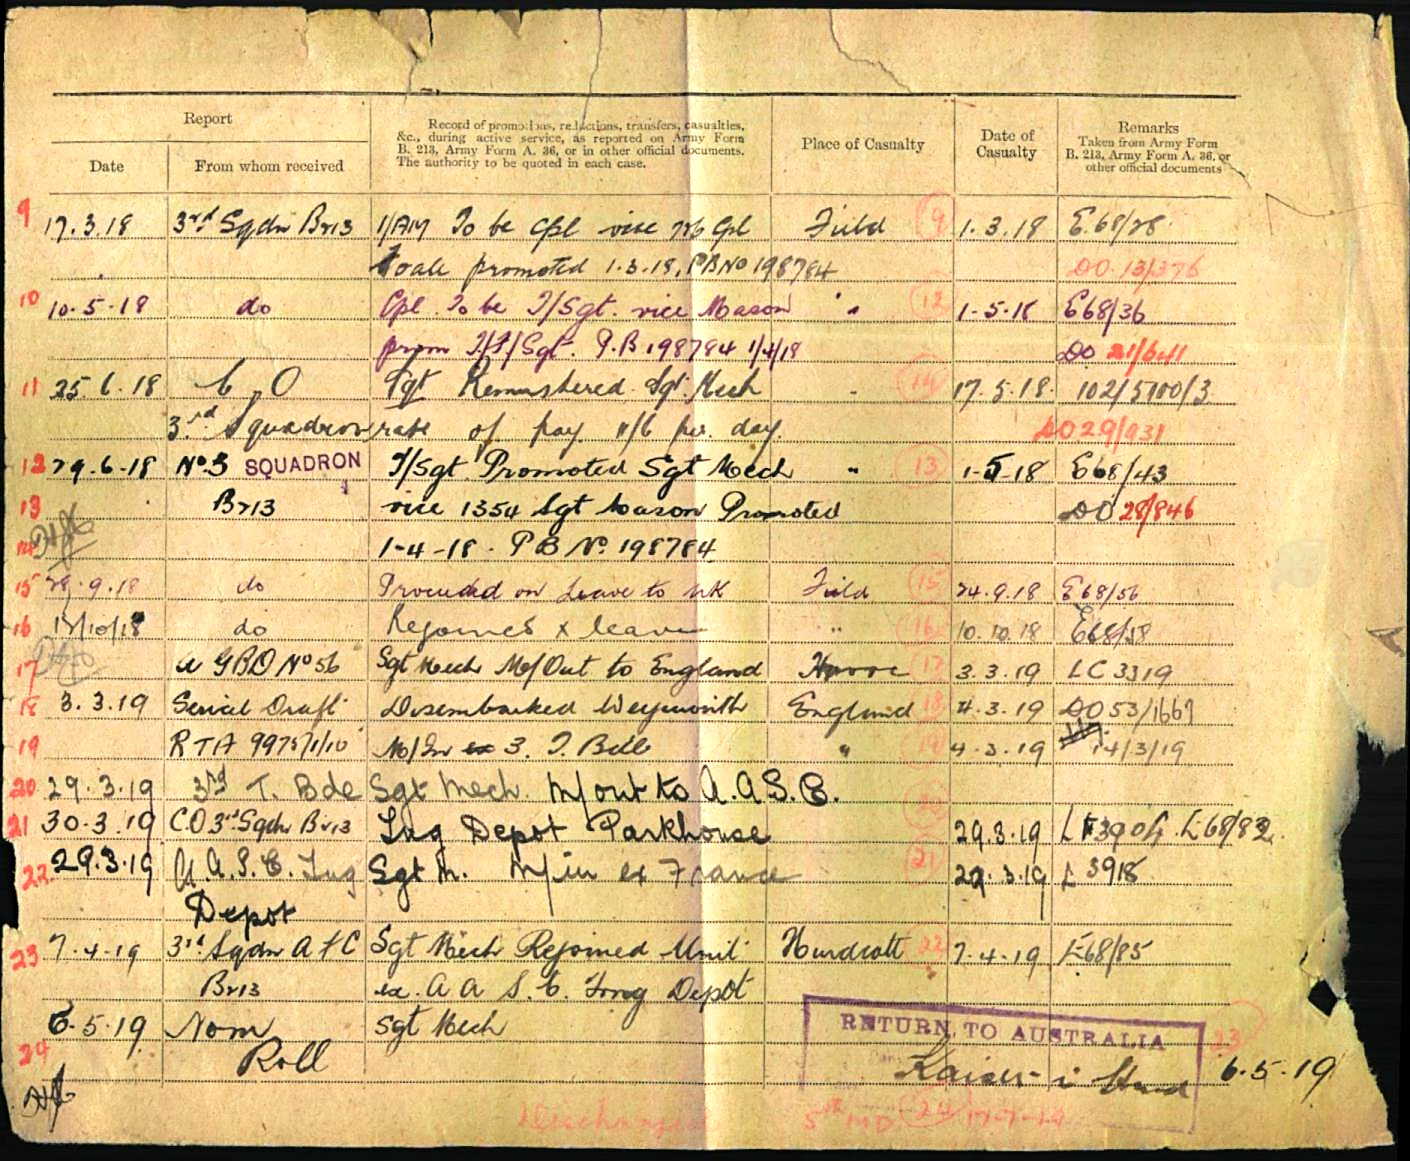 Report
Date
From whom received
Record of promotions, reductions, transfers, casualties,
&c., during active service, as reported on Army Form
B. 213, Army Form A. 36, or in other official documents.
The authority to be quoted in each case.
Place of Casualty
Date of
Casualty
Remarks
Taken from Army Form
B. 213, Army Form A. 36, or
other official documents
9 17.3.18 3rd Sqdn Br13 1/AM To be Cpl vice Cpl Field 9 1.3.18 E.68/28
promoted 1.3.18, PB No 198784 DO 13/376
10 10-5-18 do Cpl. To be T/Sgt. vice Mason " 12 1-5-18 E68/36
prom T/Sgt. P.B 198784 1/4/18 DO 21/641
11 25.6.18 C.O Sgt Remustered Sgt. Mech 14 17.5.18. 102/5700/3
3rd Squadron rate of pay 11/6 per day. DO 29/931
12 29.6-18 No 3 SQUADRON T/Sgt. Promoted Sgt Mech " 13 1-5-18 E68/43
13 Br13 vice 1354 Sgt Mason Promoted DO 28/846
14 1-4-18. P B No. 198784
15 29.9.18 do Proceeded on Leave to UK Field 15 24.9.18 E68/56
16 17/10/18 do Rejoined x leave " 16 10.10.18 E68/58
17 A GBD No 56 Sgt Mech M/Out to England Havre 17 3.3.19 LC 3319
18 3.3.19 Serial Draft Disembarked Weymouth England 18 4.3.19 DO 53/1667
19 RTA 9975/1/10 M/In ex 3. T. Bde " 19 4.3.19 14/3/19
20 29.3.19 3rd T. Bde Sgt Mech. M/out to A.A.S.C.
21 30.3.19 C.O 3rd Sqdn Br13 Trng Depot Parkhouse 29.3.19 L 3904 E68/82
22 29.3.19 A.A.S.C. Trng Sgt M. M/in ex France 21 29.3.19 L 3918
Depot
23 7-4-19 3rd Sqdn A F C Sgt Mech Rejoined Unit Hurdcott 22 7.4.19 E68/85
Br13 ex. A A S.C. Trng Depot
24 6.5.19 Nom Sgt Mech
RETURN TO AUSTRALIA 23
Roll Kaiser-i-Hind 6.5.19
Discharged 5th MD 24 17-7-19